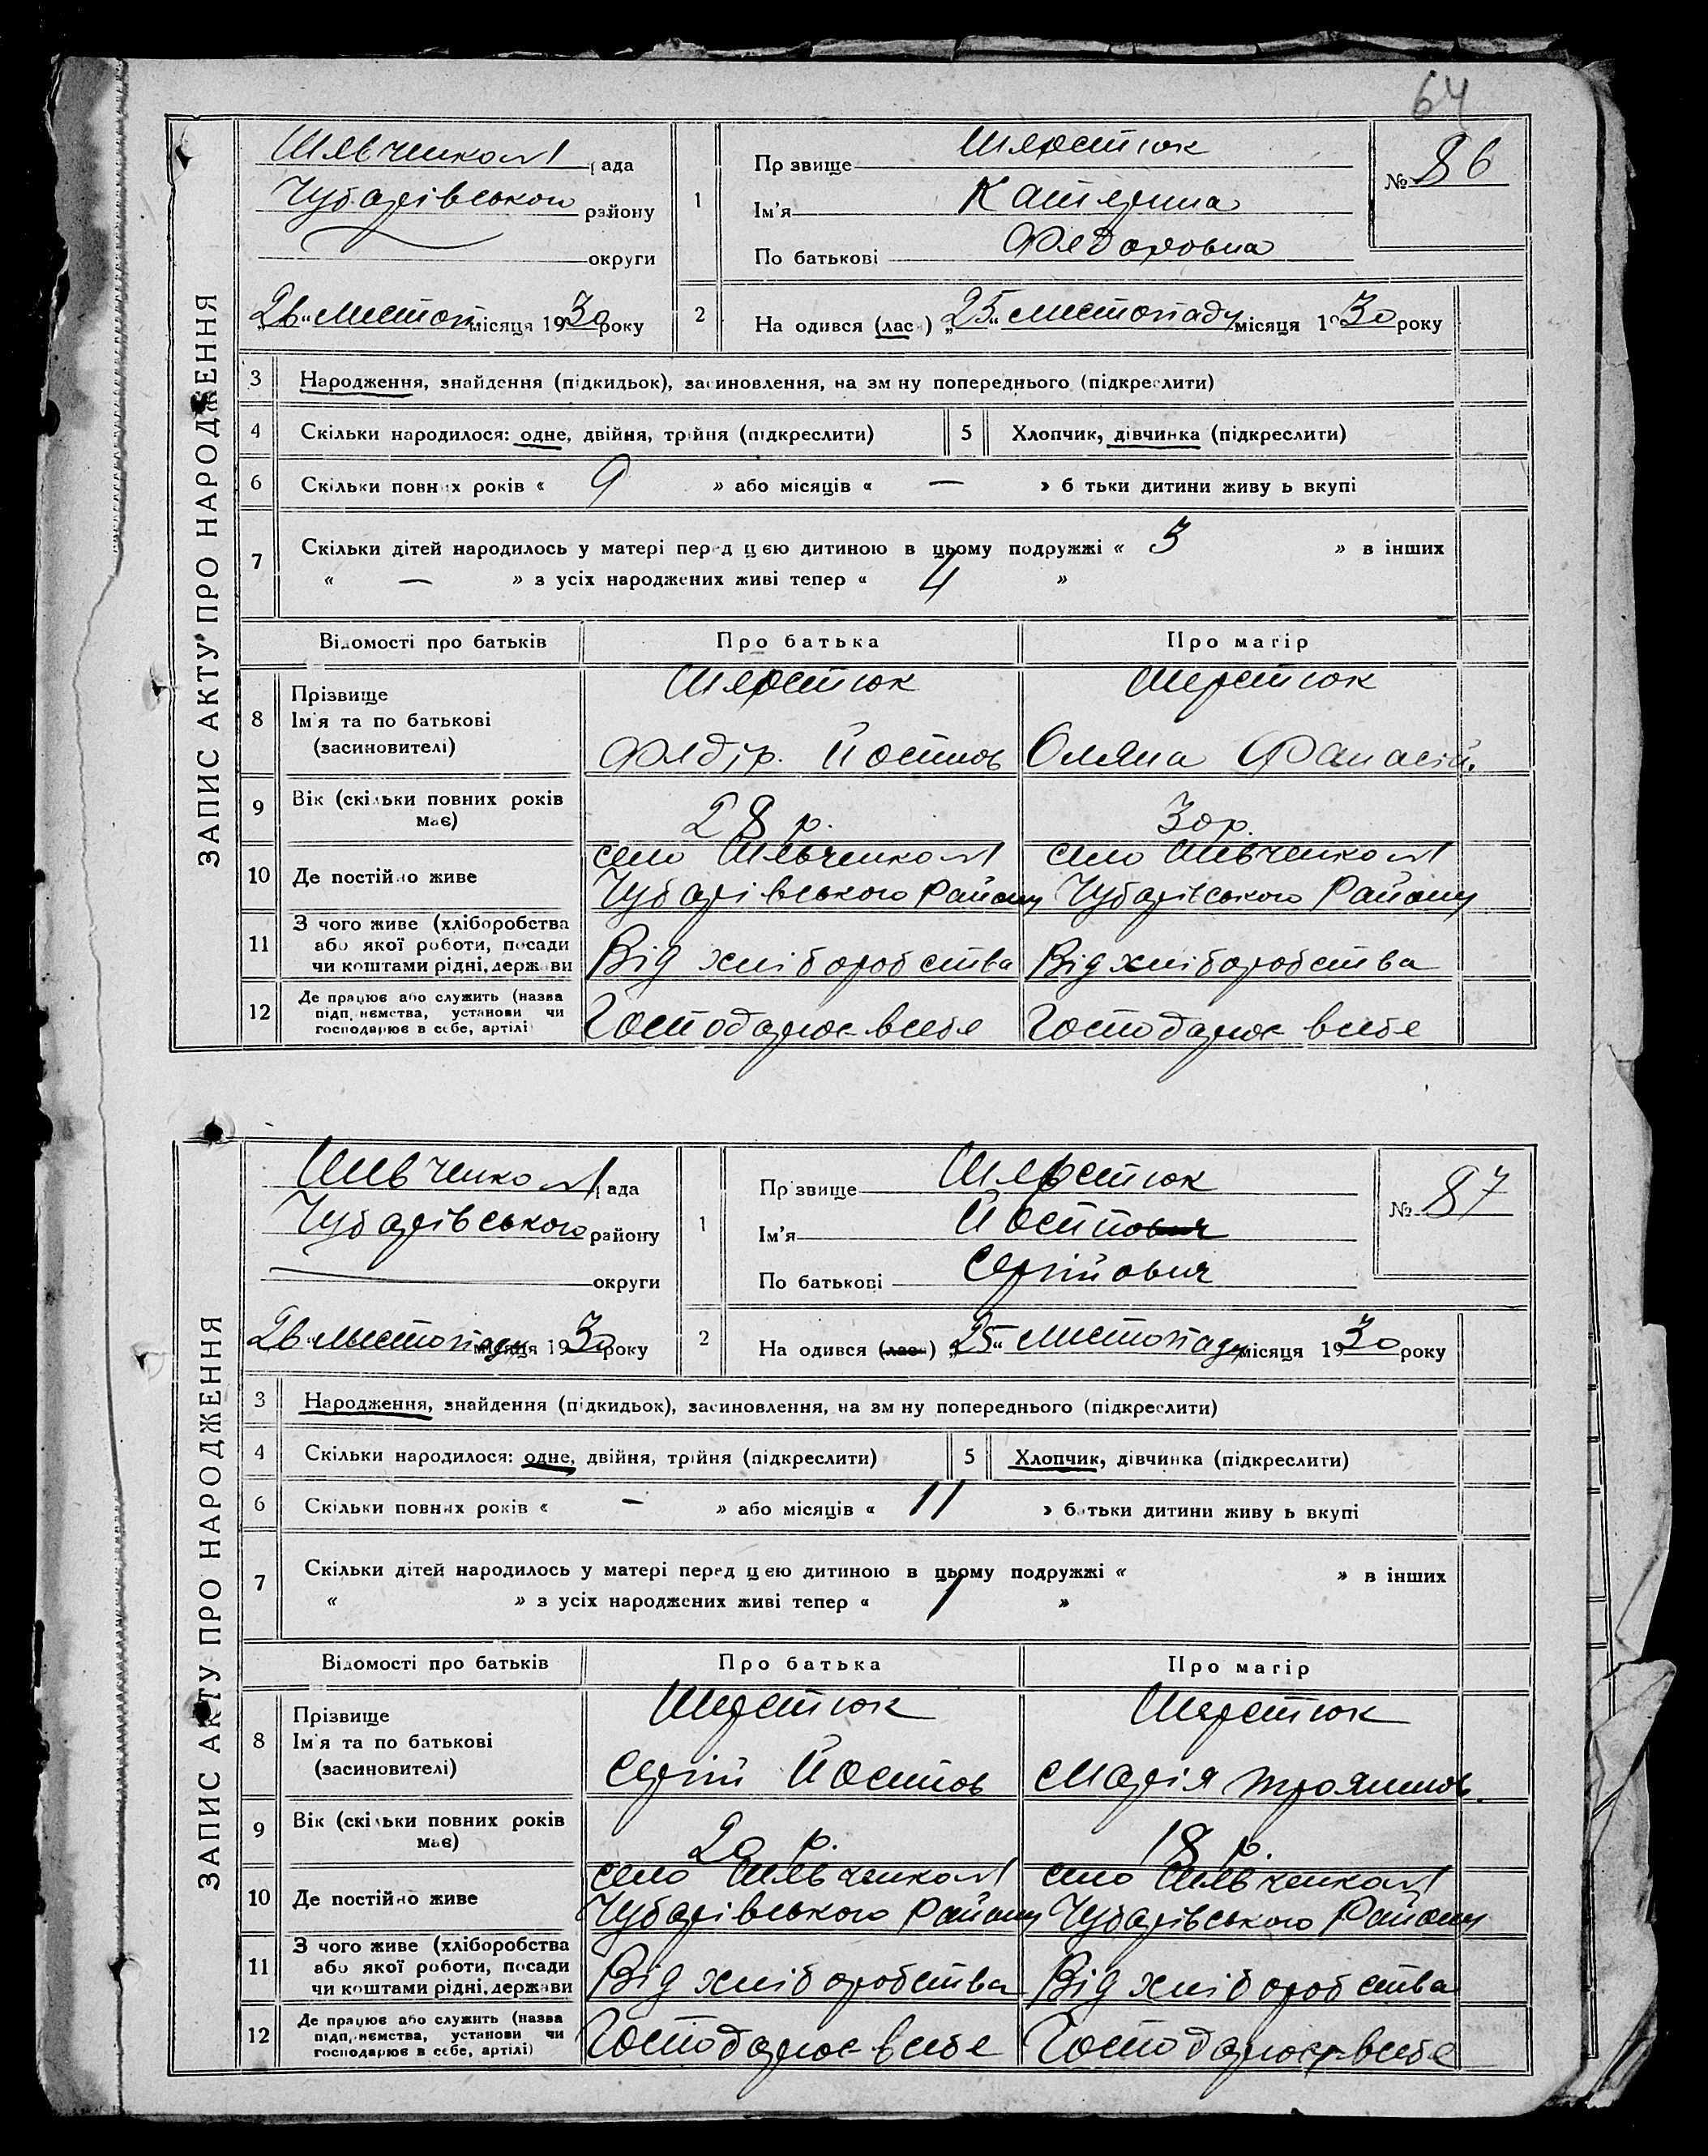 64
ЗАПИС АКТУ ПРО НАРОДЖЕННЯ
Шевченко №1 рада
Чубарівського району
округи
„26“ листоп місяця 1930 року
1
Прізвище Шерстюк
Ім'я Катерина
По батькові Федоровна
№ 86
2
Народився (лась) „25“ листопаду місяця 1930 року
3 Народження, знайдення (підкидьок), засиновлення, на зміну попереднього (підкреслити)
4 Скільки народилося: одне, двійня, трійня (підкреслити)
5 Хлопчик, дівчинка (підкреслити)
6 Скільки повних років « 9 » або місяців « — » батьки дитини живуть вкупі
7 Скільки дітей народилось у матері перед цією дитиною в цьому подружжі « 3 » в інших
« — » з усіх народжених живі тепер « 4 »
Відомості про батьків Про батька Про матір
8 Прізвище Шерстюк Шерстюк
Ім'я та по батькові
(засиновителі) Федір. Йосипов Оляна Фанасій.
9 Вік (скільки повних років
має) 28 р. 30 р.
10 Де постійно живе село Шевченко №1 село Шевченко №1
Чубарівського Району Чубарівського Району
11 З чого живе (хліборобства
або якої роботи, посади
чи коштами рідні, держави Від хліборобства Від хліборобства
12 Де працює або служить (назва
підприємства, установи чи
господарює в себе, артілі) Господарює в себе Господарює в себе
ЗАПИС АКТУ ПРО НАРОДЖЕННЯ
Шевченко №1 рада
Чубарівського району
округи
„26“ листопаду місяця 1930 року
1
Прізвище Шерстюк
Ім'я Йосипович
По батькові Сергійович
№ 87
2
Народився (лась) „25“ листопаду місяця 1930 року
3 Народження, знайдення (підкидьок), засиновлення, на зміну попереднього (підкреслити)
4 Скільки народилося: одне, двійня, трійня (підкреслити)
5 Хлопчик, дівчинка (підкреслити)
6 Скільки повних років « — » або місяців « 11 » батьки дитини живуть вкупі
7 Скільки дітей народилось у матері перед цією дитиною в цьому подружжі « » в інших
« » з усіх народжених живі тепер « 1 »
Відомості про батьків Про батька Про матір
8 Прізвище Шерстюк Шерстюк
Ім'я та по батькові
(засиновителі) Сергій Йосипов Марія Трохимов.
9 Вік (скільки повних років
має) 20 р. 18 р.
10 Де постійно живе село Шевченко №1 село Шевченко №1
Чубарівського Району Чубарівського Району
11 З чого живе (хліборобства
або якої роботи, посади
чи коштами рідні, держави Від хліборобства Від хліборобства
12 Де працює або служить (назва
підприємства, установи чи
господарює в себе, артілі) Господарює в себе Господарює в себе